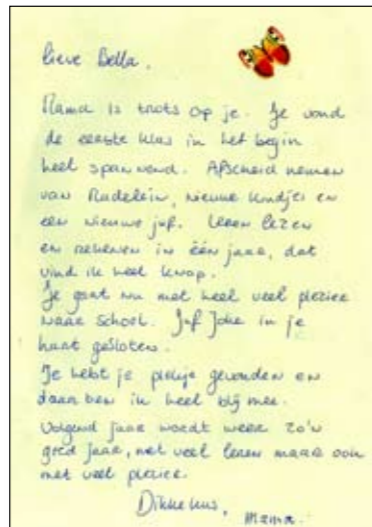 Lieve Bella,
Mama is trots op je. Je vond
de eerste klas in het begin
heel spannend. Afscheid nemen
van Madelein, nieuwe kindjes en
een nieuwe juf. Leren lezen
en rekenen in één jaar, dat
vind ik heel knap.
Je gaat nu met heel veel plezier
naar school. Juf Joke in je
hart gesloten.
Je hebt je plekje gevonden en
daar ben ik heel blij mee.
Volgend jaar wordt weer zo'n
goed jaar, met veel leren maar ook
met veel plezier.
Dikke kus,
Mama.